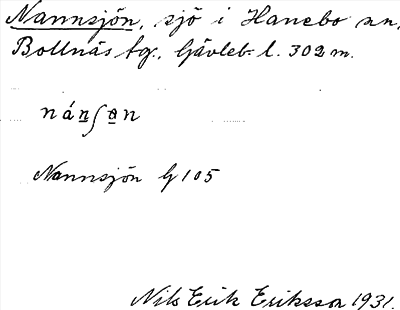 Nannsjön, sjö i Hanebo sn,
Bollnäs tg., Gävleb. l. 302 m.
Nannsjön G 105
Nils Erik Eriksson 1931.